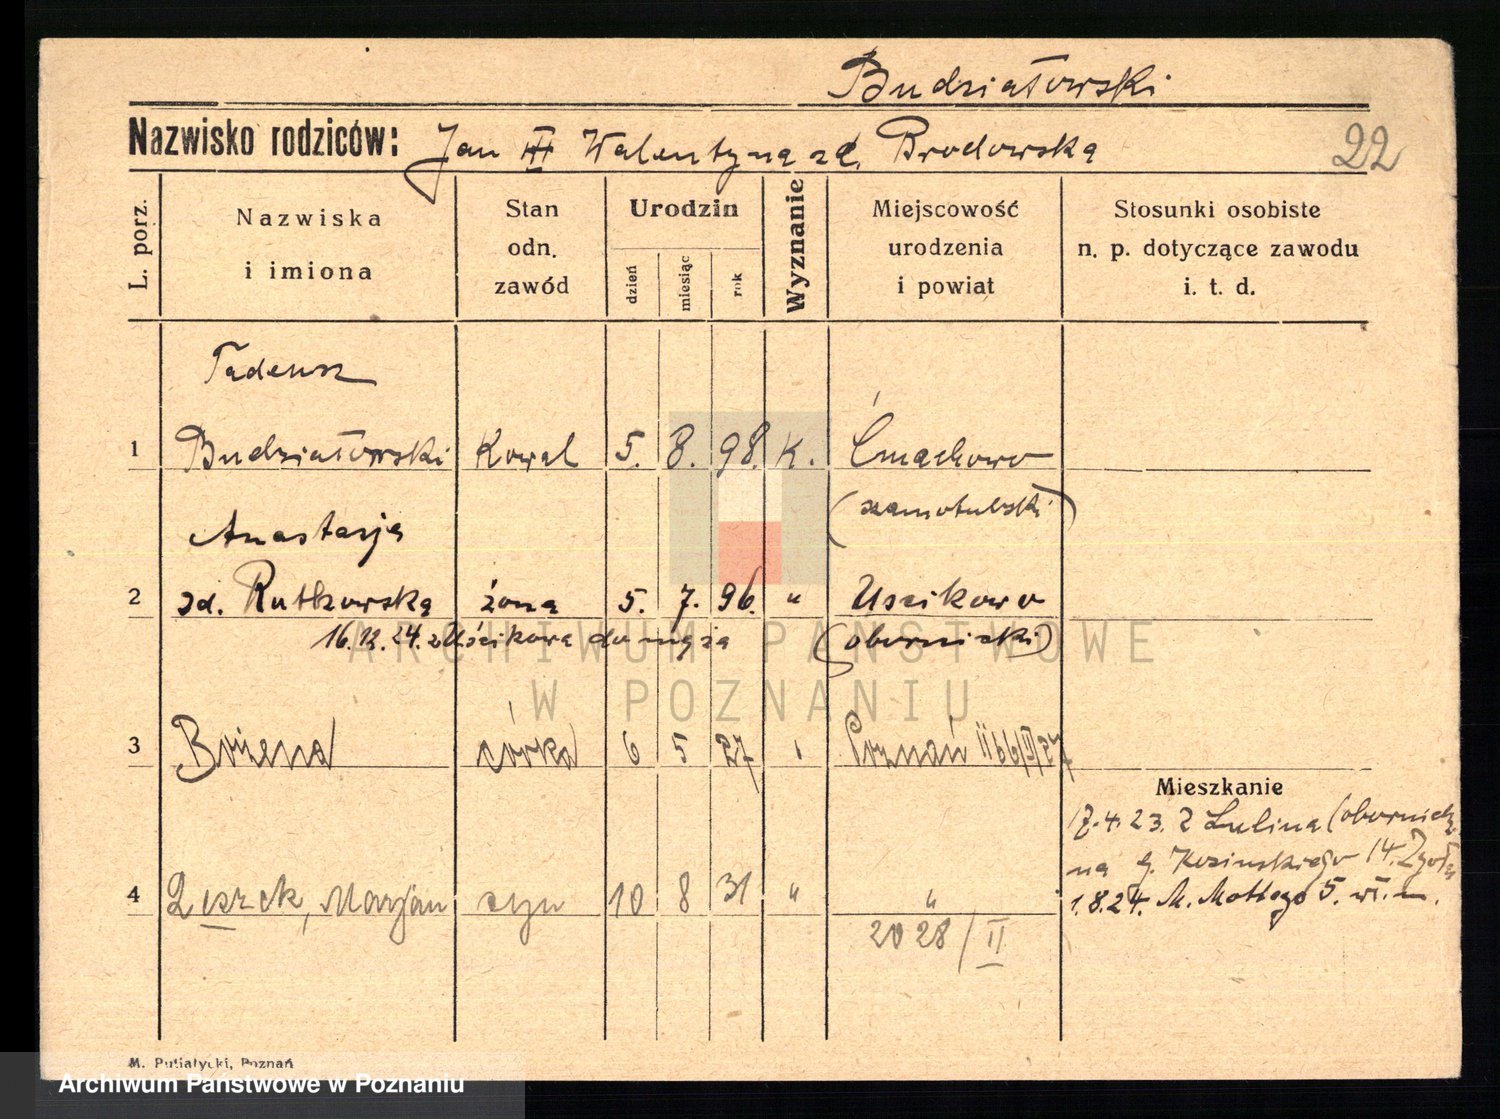 Budziałowski
Nazwisko rodziców: Jan Walentyna zd. Brodowska
22
L. porz.
Nazwiska i imiona
Stan odn. zawód
Urodzin
dzień
miesiąc
rok
Wyznanie
Miejscowość urodzenia i powiat
Stosunki osobiste n. p. dotyczące zawodu i. t. d.
Tadeusz
1 Budziałowski Kowal 5. 8. 98. K. Ćmachowo
(szamotulski)
Anastazja
2 zd. Rutkowska żona 5. 7. 96. " Uścikowo
16.12.24. z Uścikowa do męża (obornicki)
3 Bożena córka 6 5 27 Poznań
Mieszkanie
17.4.23. z Lulina (obornicki
na G. Kosinskiego 14.
4 Leszek, Marjan syn 10 8 31 " "
1.8.24. M. Mottego 5.
2028/II
M. Putiatycki, Poznań
ARCHIWUM PAŃSTWOWE
W POZNANIU
Archiwum Państwowe w Poznaniu